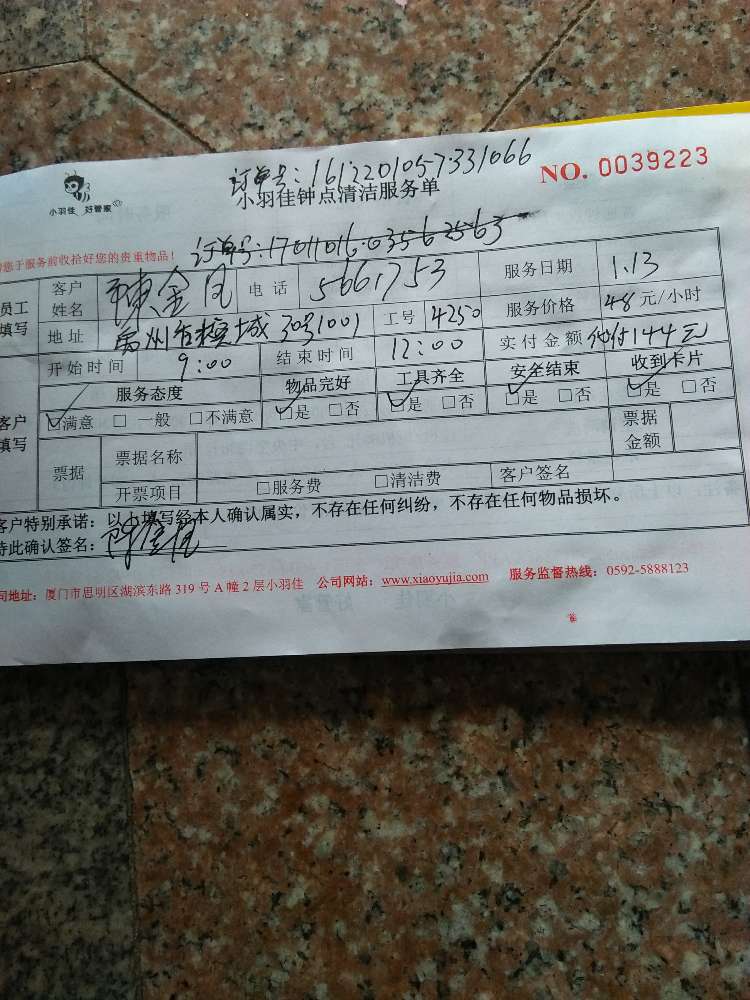 订单号：1612201057331066
小羽佳 好管家
小羽佳钟点清洁服务单
NO. 0039223
订单号：17011016035625 63
您于服务前收拾好您的贵重物品！
员工填写 客户姓名 陈金凤 电话 5661753 服务日期 1.13
地址 30号1001 工号 4250 服务价格 48元/小时
开始时间 9:00 结束时间 12:00 实付金额 144元
客户填写 服务态度 物品完好 工具齐全 安全结束 收到卡片
☑满意 □一般 □不满意 ☑是 □否 ☑是 □否 ☑是 □否 ☑是 □否
票据 票据名称 票据金额
开票项目 □服务费 □清洁费 客户签名
客户特别承诺：以上填写经本人确认属实，不存在任何纠纷，不存在任何物品损坏。
特此确认签名：
司地址：厦门市思明区湖滨东路319号A幢2层小羽佳 公司网站：www.xiaoyujia.com 服务监督热线：0592-5888123